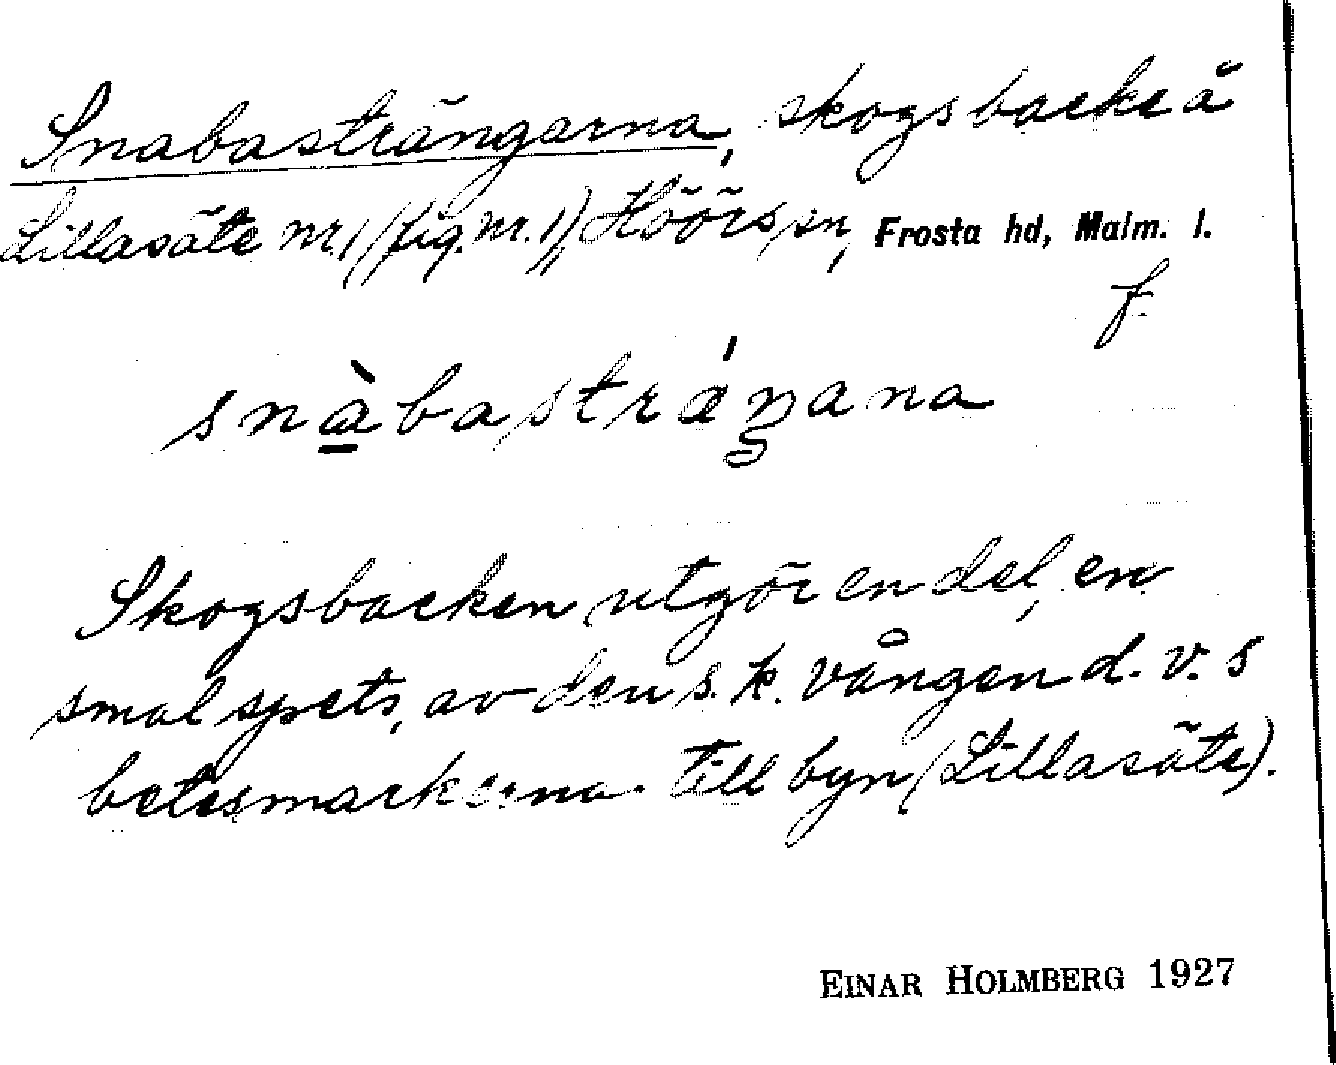 Snabasträngarna, skogsbacke å
Lillasäte nr. 1 (fig. nr. 1), Höörs sn, Frosta hd, Malm. l.
f.
snàbastrǽŋana
Skogsbacken utgör en del, en
smal spets, av den s.k. vången d. v. s
betesmarkerna till byn (Lillasäte).
EINAR HOLMBERG 1927